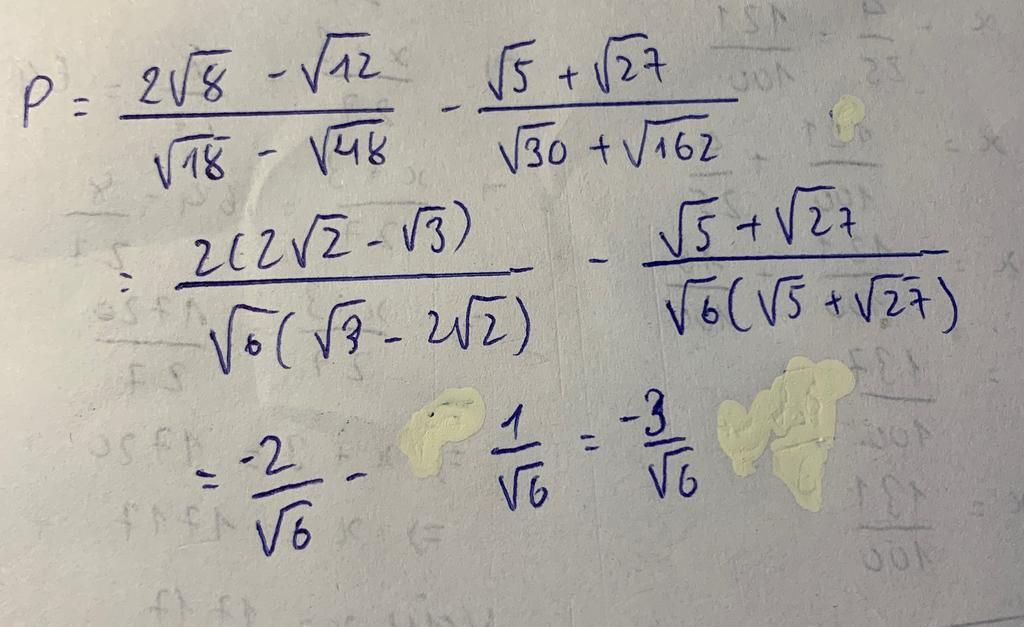 P = \frac{2\sqrt{8} - \sqrt{12}}{\sqrt{18} - \sqrt{48}} - \frac{\sqrt{5} + \sqrt{27}}{\sqrt{30} + \sqrt{162}}
= \frac{2(2\sqrt{2} - \sqrt{3})}{\sqrt{6}(\sqrt{3} - 2\sqrt{2})} - \frac{\sqrt{5} + \sqrt{27}}{\sqrt{6}(\sqrt{5} + \sqrt{27})}
= \frac{-2}{\sqrt{6}} - \frac{1}{\sqrt{6}} = \frac{-3}{\sqrt{6}}